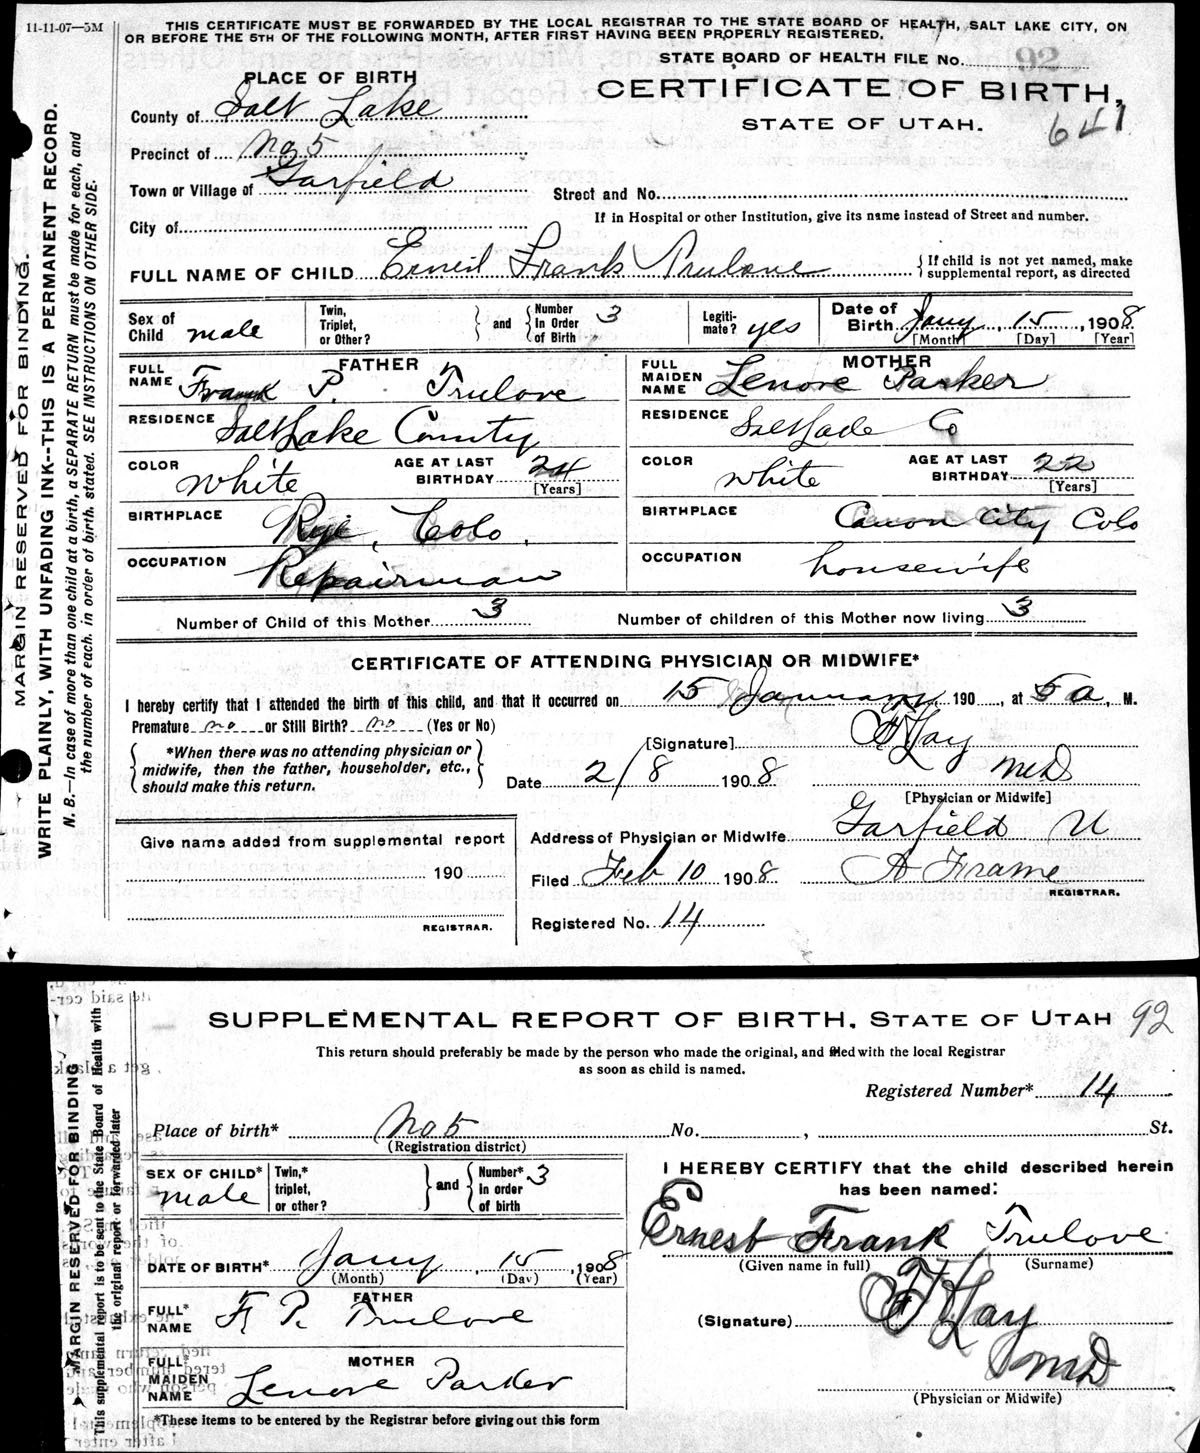 11-11-07—5M
THIS CERTIFICATE MUST BE FORWARDED BY THE LOCAL REGISTRAR TO THE STATE BOARD OF HEALTH, SALT LAKE CITY, ON
OR BEFORE THE 5TH OF THE FOLLOWING MONTH, AFTER FIRST HAVING BEEN PROPERLY REGISTERED.
STATE BOARD OF HEALTH FILE No. 92
PLACE OF BIRTH
CERTIFICATE OF BIRTH,
County of Salt Lake
STATE OF UTAH.
641
Precinct of No 5
Town or Village of Garfield
Street and No.
If in Hospital or other Institution, give its name instead of Street and number.
City of
FULL NAME OF CHILD Ernest Frank Trulove
{ If child is not yet named, make
supplemental report, as directed
Sex of Child male
Twin, Triplet, or Other? } and { Number In Order of Birth 3
Legiti-mate? yes
Date of Birth Jany, 15, 1908
[Month] [Day] [Year]
FATHER
FULL NAME Frank P. Trulove
MOTHER
FULL MAIDEN NAME Lenore Parker
RESIDENCE Salt Lake County
RESIDENCE Salt Lade Co
COLOR white AGE AT LAST BIRTHDAY 24 [Years]
COLOR white AGE AT LAST BIRTHDAY 22 [Years]
BIRTHPLACE Rye, Colo.
BIRTHPLACE Canon City Colo
OCCUPATION Repairman
OCCUPATION housewife
Number of Child of this Mother 3 Number of children of this Mother now living 3
CERTIFICATE OF ATTENDING PHYSICIAN OR MIDWIFE*
I hereby certify that I attended the birth of this child, and that it occurred on 15 January, 190 , at 5 a. M.
Premature no or Still Birth? no (Yes or No)
{ *When there was no attending physician or
midwife, then the father, householder, etc.,
should make this return. }
[Signature] F Hay
MD
Date 2/8 1908
[Physician or Midwife]
Give name added from supplemental report
190
REGISTRAR.
Address of Physician or Midwife Garfield U
Filed Feb 10 1908 A Frame
REGISTRAR.
Registered No. 14
MARGIN RESERVED FOR BINDING.
WRITE PLAINLY, WITH UNFADING INK--THIS IS A PERMANENT RECORD.
N. B.—In case of more than one child at a birth, a SEPARATE RETURN must be made for each, and
the number of each, in order of birth, stated. SEE INSTRUCTIONS ON OTHER SIDE.
SUPPLEMENTAL REPORT OF BIRTH, STATE OF UTAH 92
This return should preferably be made by the person who made the original, and filed with the local Registrar
as soon as child is named.
Registered Number* 14
Place of birth* No 5 No. , St.
(Registration district)
SEX OF CHILD* male
Twin,* triplet, or other? } and { Number* In order of birth 3
I HEREBY CERTIFY that the child described herein
has been named:
Ernest Frank Trulove
(Given name in full) (Surname)
DATE OF BIRTH* Jany, 15, 1908
(Month) (Day) (Year)
FATHER
FULL* NAME F. P. Trulove
(Signature) F Hay
MD
(Physician or Midwife)
MOTHER
FULL* MAIDEN NAME Lenore Parker
*These items to be entered by the Registrar before giving out this form
MARGIN RESERVED FOR BINDING
This supplemental report is to be sent to the State Board of Health with
the original report or forwarded later